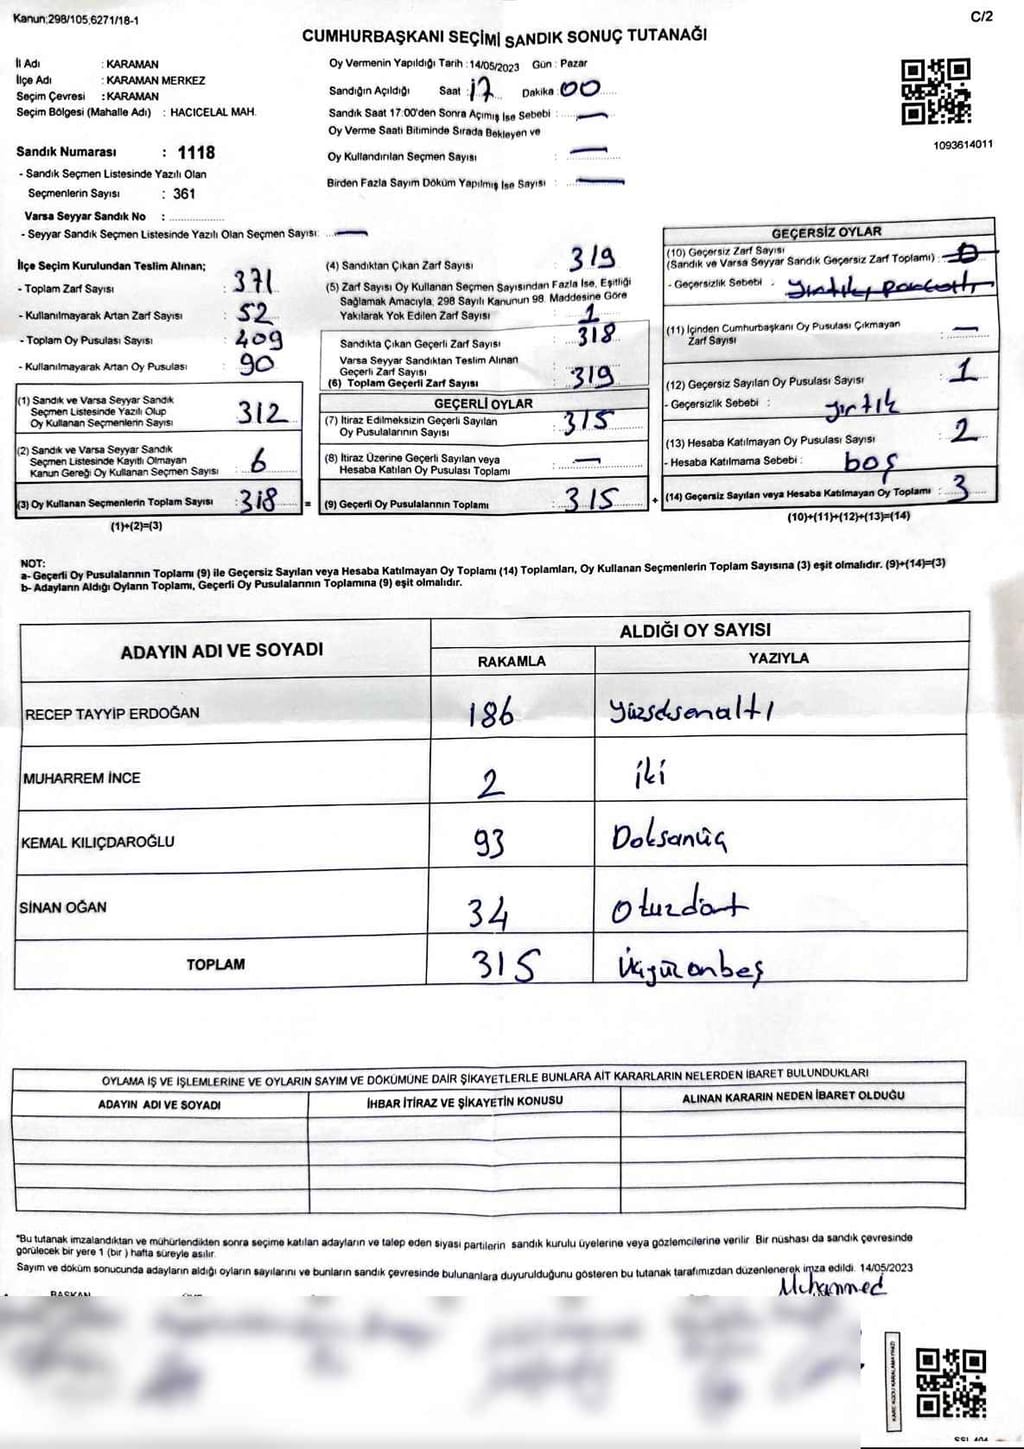 Kanun:298/105,6271/18-1
C/2
CUMHURBAŞKANI SEÇİMİ SANDIK SONUÇ TUTANAĞI
İl Adı : KARAMAN
İlçe Adı : KARAMAN MERKEZ
Seçim Çevresi : KARAMAN
Seçim Bölgesi (Mahalle Adı) : HACICELAL MAH.
Sandık Numarası : 1118
- Sandık Seçmen Listesinde Yazılı Olan
Seçmenlerin Sayısı : 361
Varsa Seyyar Sandık No :
- Seyyar Sandık Seçmen Listesinde Yazılı Olan Seçmen Sayısı: —
Oy Vermenin Yapıldığı Tarih : 14/05/2023 Gün : Pazar
Sandığın Açıldığı Saat : 17 Dakika : 00
Sandık Saat 17:00'den Sonra Açımış İse Sebebi : —
Oy Verme Saati Bitiminde Sırada Bekleyen ve
Oy Kullandırılan Seçmen Sayısı : —
Birden Fazla Sayım Döküm Yapılmış İse Sayısı : —
1093614011
İlçe Seçim Kurulundan Teslim Alınan;
- Toplam Zarf Sayısı : 371
- Kullanılmayarak Artan Zarf Sayısı : 52
- Toplam Oy Pusulası Sayısı : 409
- Kullanılmayarak Artan Oy Pusulası : 90
(1) Sandık ve Varsa Seyyar Sandık
Seçmen Listesinde Yazılı Olup
Oy Kullanan Seçmenlerin Sayısı : 312
(2) Sandık ve Varsa Seyyar Sandık
Seçmen Listesinde Kayıtlı Olmayan
Kanun Gereği Oy Kullanan Seçmen Sayısı : 6
(3) Oy Kullanan Seçmenlerin Toplam Sayısı : 318 =
(1)+(2)=(3)
(4) Sandıktan Çıkan Zarf Sayısı : 319
(5) Zarf Sayısı Oy Kullanan Seçmen Sayısından Fazla İse, Eşitliği
Sağlamak Amacıyla, 298 Sayılı Kanunun 98. Maddesine Göre
Yakılarak Yok Edilen Zarf Sayısı : 1
Sandıkta Çıkan Geçerli Zarf Sayısı : 318
Varsa Seyyar Sandıktan Teslim Alınan
Geçerli Zarf Sayısı
(6) Toplam Geçerli Zarf Sayısı : 319
GEÇERLİ OYLAR
(7) İtiraz Edilmeksizin Geçerli Sayılan
Oy Pusulalarının Sayısı : 315
(8) İtiraz Üzerine Geçerli Sayılan veya
Hesaba Katılan Oy Pusulası Toplamı : —
(9) Geçerli Oy Pusulalarının Toplamı : 315 +
GEÇERSİZ OYLAR
(10) Geçersiz Zarf Sayısı
(Sandık ve Varsa Seyyar Sandık Geçersiz Zarf Toplamı) : 0
- Geçersizlik Sebebi :
(11) İçinden Cumhurbaşkanı Oy Pusulası Çıkmayan
Zarf Sayısı : —
(12) Geçersiz Sayılan Oy Pusulası Sayısı : 1
- Geçersizlik Sebebi : yırtık
(13) Hesaba Katılmayan Oy Pusulası Sayısı : 2
- Hesaba Katılmama Sebebi : boş
(14) Geçersiz Sayılan veya Hesaba Katılmayan Oy Toplamı : 3
(10)+(11)+(12)+(13)=(14)
NOT:
a- Geçerli Oy Pusulalarının Toplamı (9) ile Geçersiz Sayılan veya Hesaba Katılmayan Oy Toplamı (14) Toplamları, Oy Kullanan Seçmenlerin Toplam Sayısına (3) eşit olmalıdır. (9)+(14)=(3)
b- Adayların Aldığı Oyların Toplamı, Geçerli Oy Pusulalarının Toplamına (9) eşit olmalıdır.
ADAYIN ADI VE SOYADI
ALDIĞI OY SAYISI
RAKAMLA YAZIYLA
RECEP TAYYİP ERDOĞAN 186 Yüzseksenaltı
MUHARREM İNCE 2 iki
KEMAL KILIÇDAROĞLU 93 Doksanüç
SİNAN OĞAN 34 Otuzdört
TOPLAM 315 Üçyüzonbeş
OYLAMA İŞ VE İŞLEMLERİNE VE OYLARIN SAYIM VE DÖKÜMÜNE DAİR ŞİKAYETLERLE BUNLARA AİT KARARLARIN NELERDEN İBARET BULUNDUKLARI
ADAYIN ADI VE SOYADI İHBAR İTİRAZ VE ŞİKAYETİN KONUSU ALINAN KARARIN NEDEN İBARET OLDUĞU
*Bu tutanak imzalandıktan ve mühürlendikten sonra seçime katılan adayların ve talep eden siyasi partilerin sandık kurulu üyelerine veya gözlemcilerine verilir. Bir nüshası da sandık çevresinde
görülecek bir yere 1 (bir) hafta süreyle asılır.
Sayım ve döküm sonucunda adayların aldığı oyların sayılarını ve bunların sandık çevresinde bulunanlara duyurulduğunu gösteren bu tutanak tarafımızdan düzenlenerek imza edildi. 14/05/2023
Muhammed
BAŞKAN